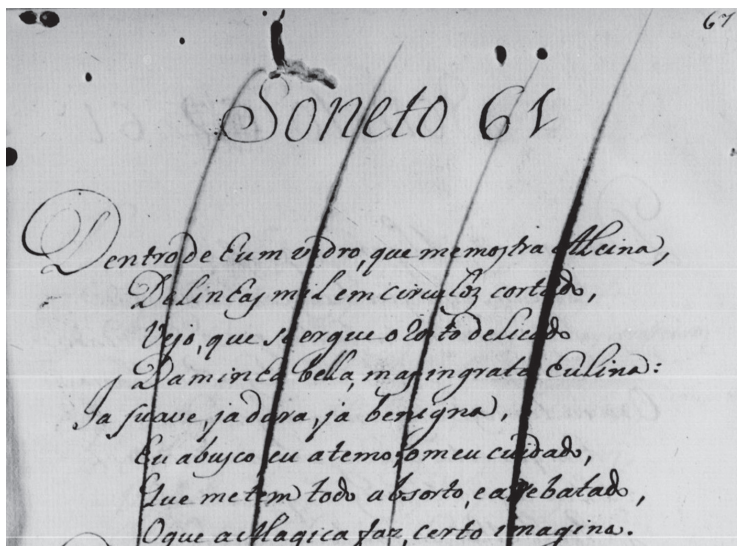 67
Soneto 61
Dentro de hum vidro, que me mostra Alcina,
De linhas mil em circulos cortado,
Vejo, que se ergue o rosto delicado
Da minha bella, mas ingrata Eulina:
Ja suave, ja dura, ja benigna,
Eu a busco, eu a temo; o meu cuidado,
Que me tem todo absorto, e arrebatado,
O que a Magica faz, certo imagina.